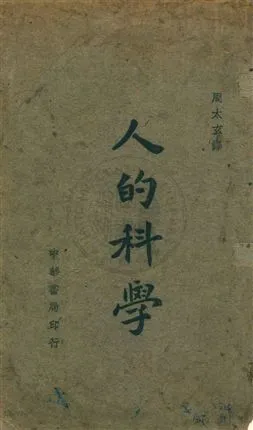 周太玄譯
人的科學
中華書局印行